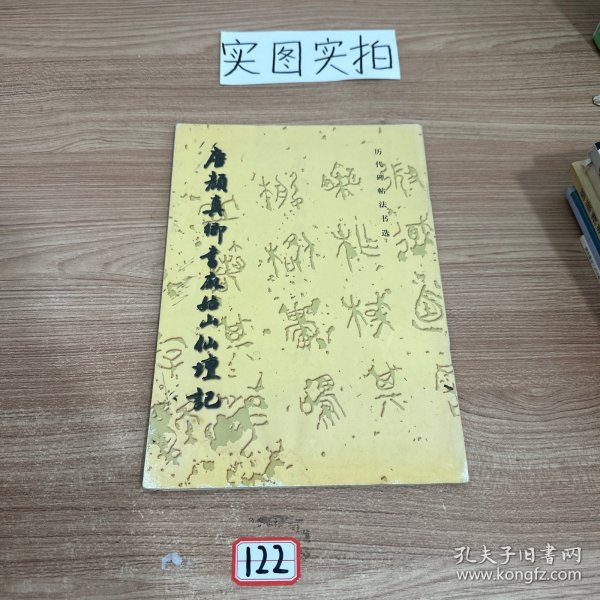 实图实拍
历代碑帖法书选
唐颜真卿书麻姑山仙坛記
122
孔夫子旧書网
www.kongfz.com